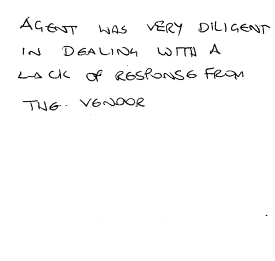 AGENT WAS VERY DILIGENT
IN DEALING WITH A
LACK OF RESPONSE FROM
THE VENDOR